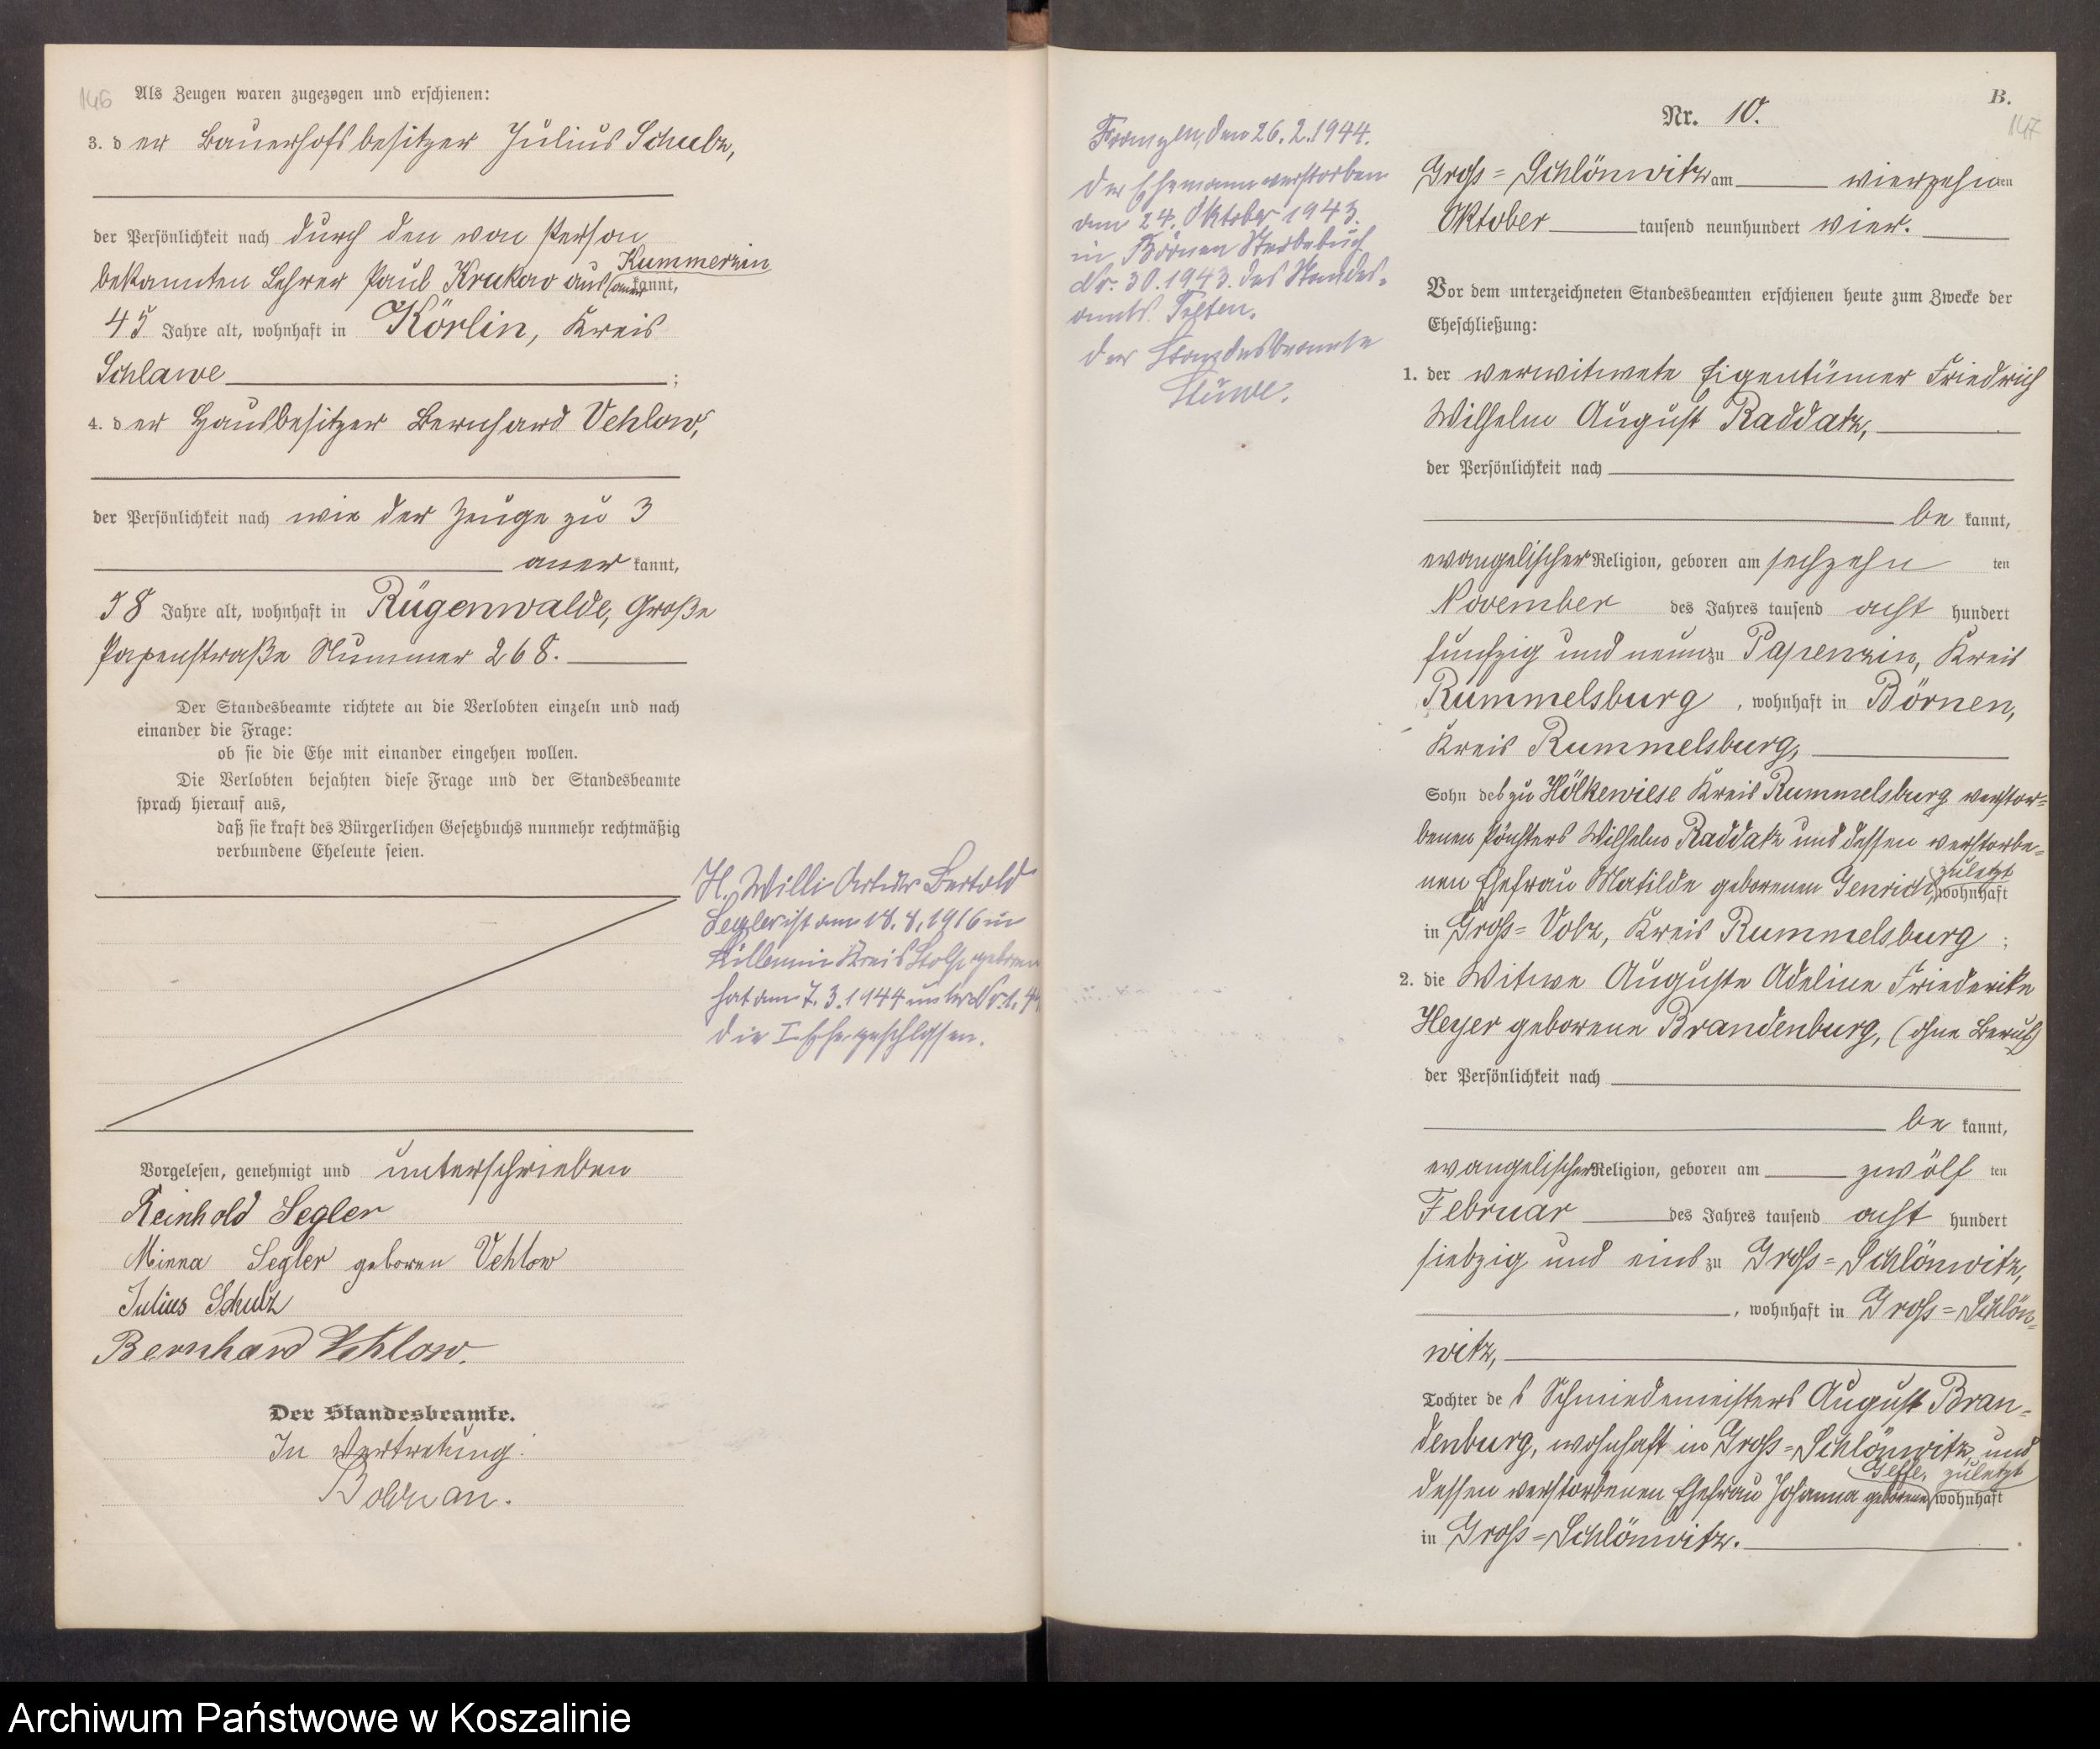 146
Als Zeugen waren zugezogen und erschienen:
3. der Bauerhofsbesitzer Julius Schulz,
der Persönlichkeit nach durch den von Person
Kummerzin
bekannten Lehrer Paul Krukow aus (anerkannt,
45 Jahre alt, wohnhaft in Körlin, Kreis
Schlawe ;
4. der Hausbesitzer Bernhard Vehlow,
der Persönlichkeit nach wie der Zeuge zu 3
anerkannt,
58 Jahre alt, wohnhaft in Rügenwalde, Große
Papenstraße Nummer 268.
Der Standesbeamte richtete an die Verlobten einzeln und nach
einander die Frage:
ob sie die Ehe mit einander eingehen wollen.
Die Verlobten bejahten diese Frage und der Standesbeamte
sprach hierauf aus,
daß sie kraft des Bürgerlichen Gesetzbuchs nunmehr rechtmäßig
verbundene Eheleute seien.
H. Willi Artur Bertold
Segler ist am 18.8.1916 in
Kreis Stolp geboren
hat am 7.3.1944 unter Nr.
die I. Ehe geschlossen.
Vorgelesen, genehmigt und unterschrieben
Reinhold Segler
Minna Segler geboren Vehlow
Julius Schulz
Bernhard Vehlow.
Der Standesbeamte.
In Vertretung:
Bolduan.
B.
147
Nr. 10.
Franzen, den 26.2.1944.
Der Ehemann verstorben
am 24. Oktober 1943.
in Börnen Sterbebuch
Nr. 30.1943. des Standes-
amts Treten.
Der Standesbeamte
Stüwe.
Groß=Schlönwitz am vierzehnten
Oktober tausend neunhundert vier.
Vor dem unterzeichneten Standesbeamten erschienen heute zum Zwecke der
Eheschließung:
1. der verwitwete Eigentümer Friedrich
Wilhelm August Raddatz,
der Persönlichkeit nach
bekannt,
evangelischer Religion, geboren am sechzehnten
November des Jahres tausend achthundert
fünfzig und neun zu Papenzin, Kreis
Rummelsburg, wohnhaft in Börnen,
Kreis Rummelsburg,
Sohn des zu Hölkewiese Kreis Rummelsburg verstor=
benen Försters Wilhelm Raddatz und dessen verstorbe=
zuletzt
nen Ehefrau Matilde geborenen Genrich, wohnhaft
in Groß=Volz, Kreis Rummelsburg ;
2. die Witwe Auguste Adeline Friederike
Heyer geborene Brandenburg, (ohne Beruf)
der Persönlichkeit nach
bekannt,
evangelischer Religion, geboren am zwölften
Februar des Jahres tausend achthundert
siebzig und eins zu Groß=Schlönwitz,
, wohnhaft in Groß=Schlön=
witz,
Tochter des Schmiedemeisters August Bran=
denburg, wohnhaft in Groß=Schlönwitz und
zuletzt
dessen verstorbenen Ehefrau Johanna geborene wohnhaft
in Groß=Schlönwitz.
Archiwum Państwowe w Koszalinie